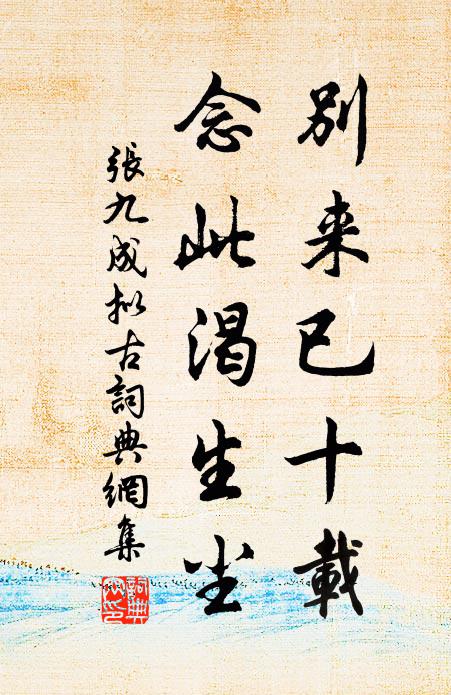 別来已十載
念此渴生尘
張九成拟古詞典網集